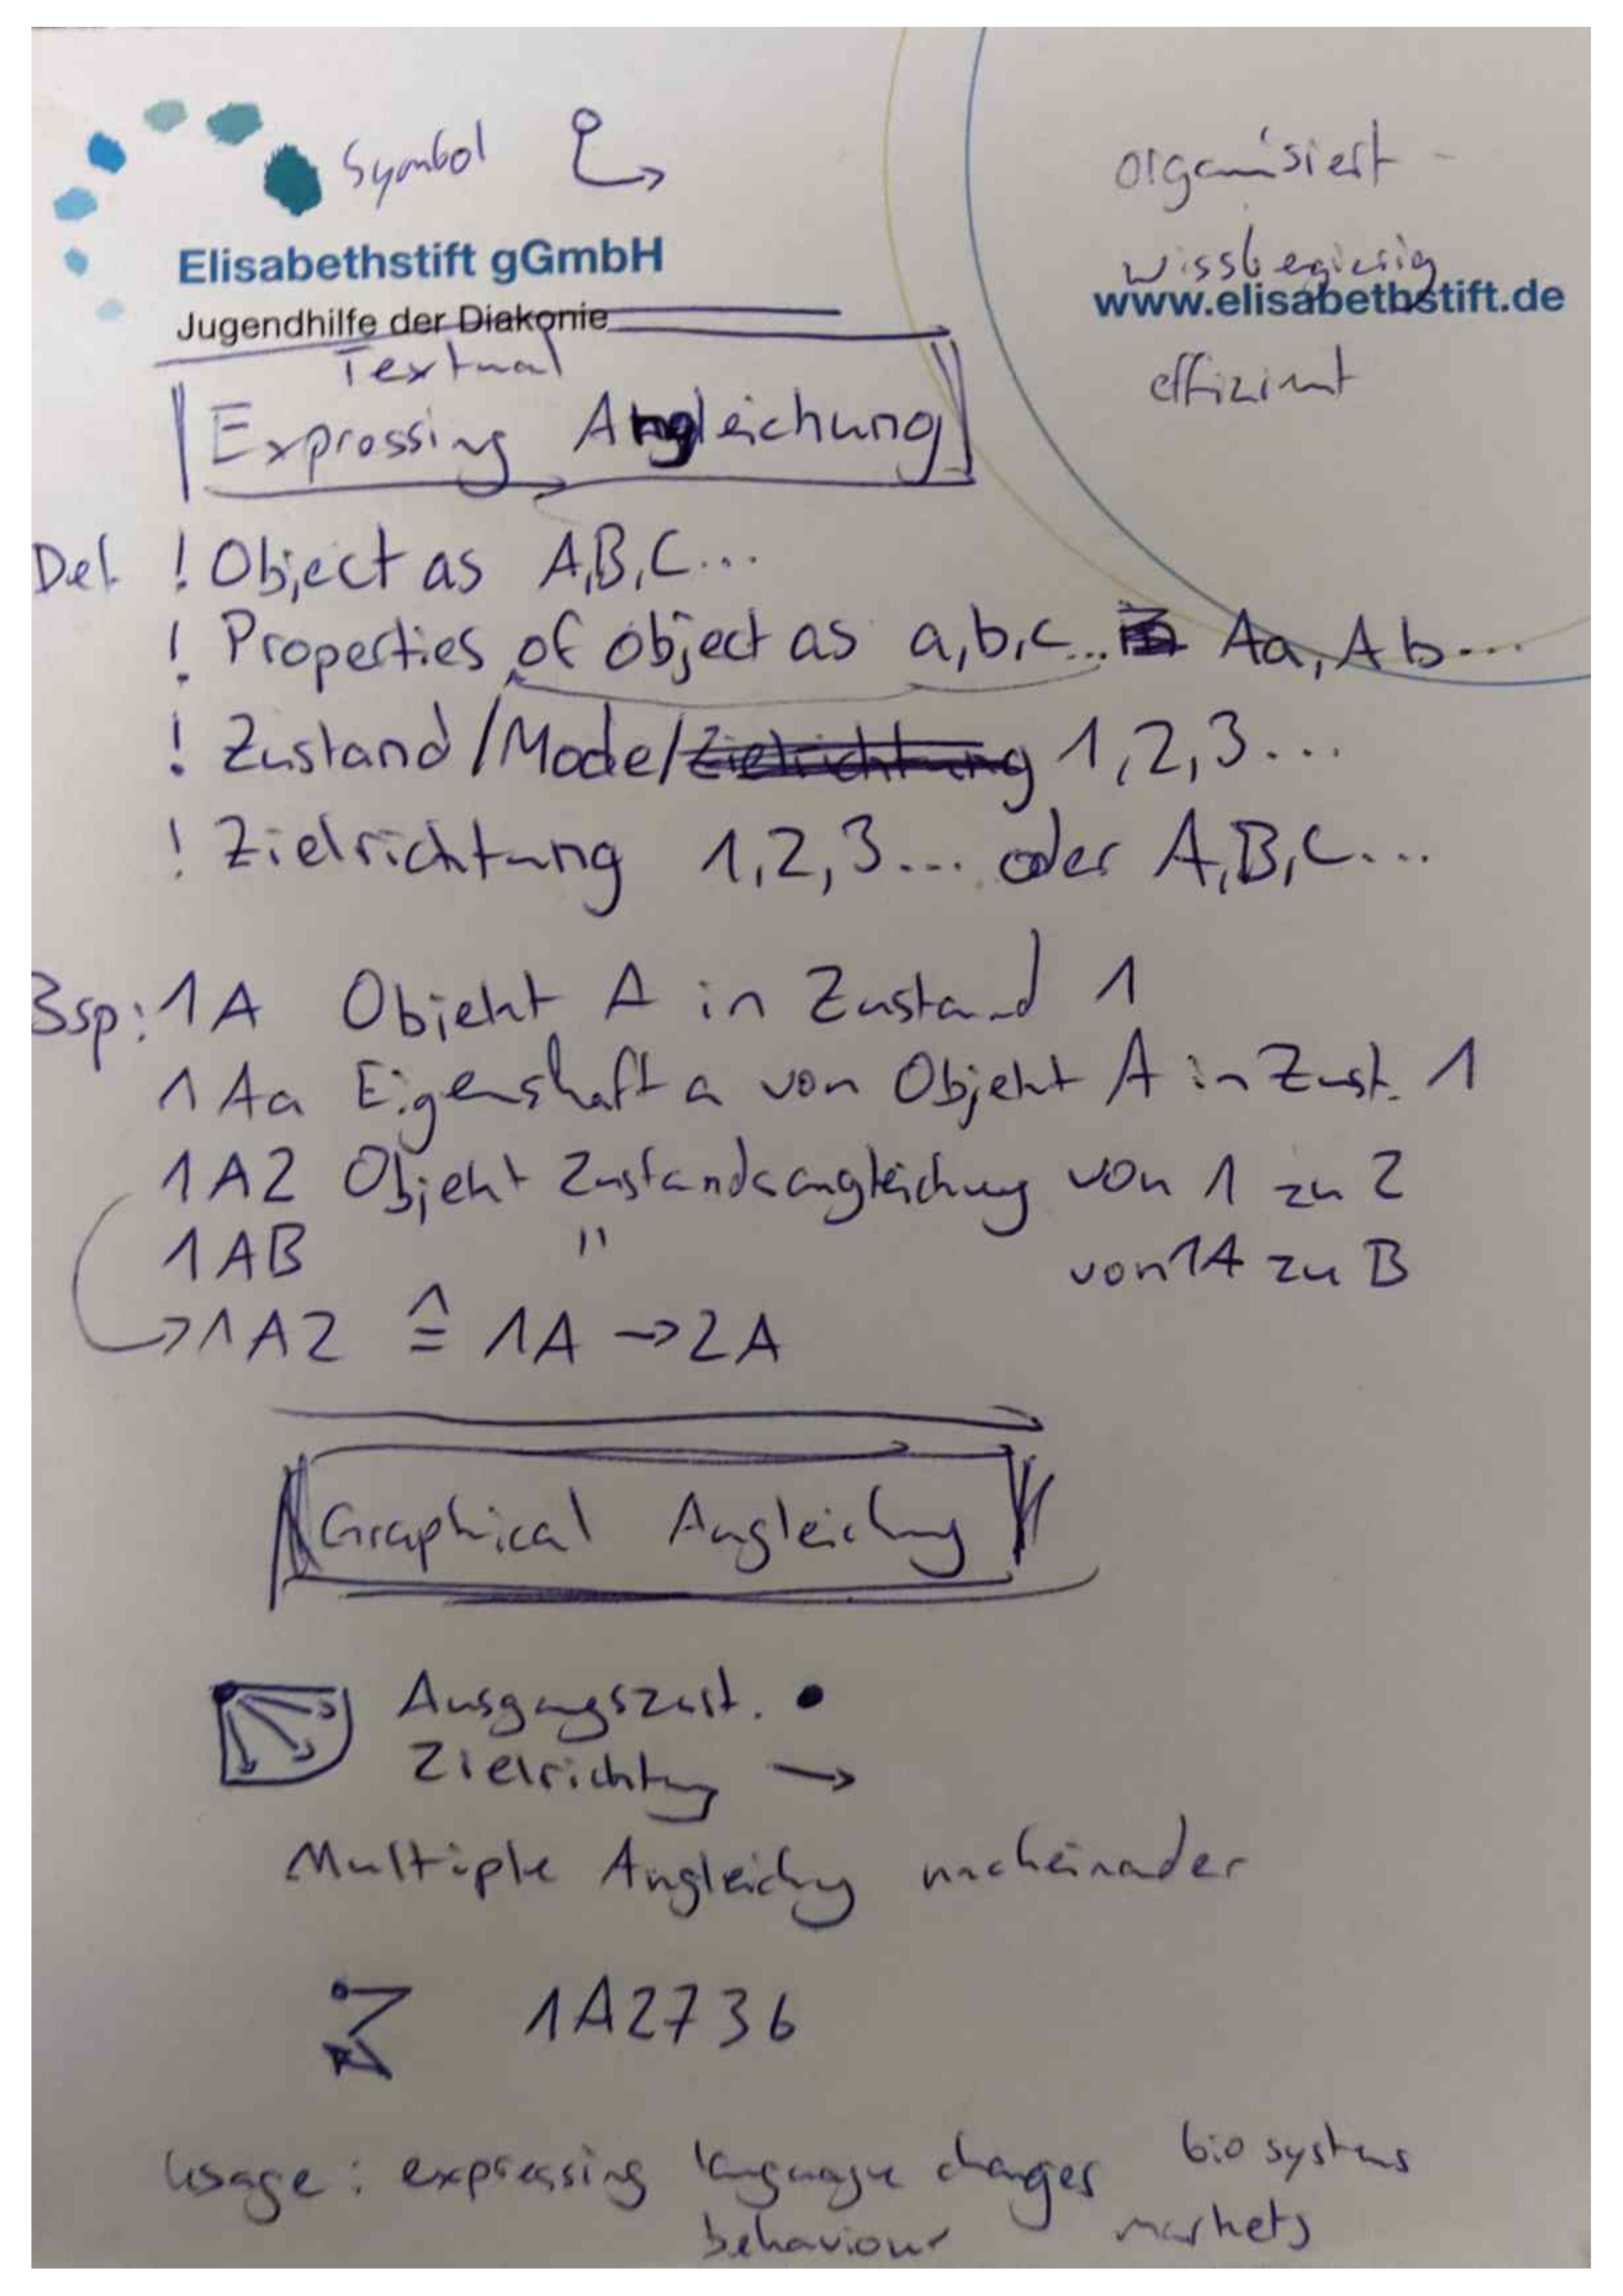 Symbol
organisiert -
Elisabethstift gGmbH
wissbegierig
www.elisabethstift.de
Jugendhilfe der Diakonie
Textual
effizient
Expressing Angleichung
Def. ! Object as A,B,C...
! Properties of object as a,b,c... Aa, Ab...
! Zustand/Mode/Zielrichtung 1,2,3...
! Zielrichtung 1,2,3... oder A,B,C...
Bsp: 1A Objekt A in Zustand 1
1Aa Eigenshaft a von Objekt A in Zust. 1
1A2 Objekt Zustandsangleichung von 1 zu 2
1AB " von 1A zu B
→1A2 ≙ 1A → 2A
Graphical Angleichung
Ausgangszust. •
Zielrichtung →
Multiple Angleichung nacheinander
1A2736
Usage: expressing language changes bio systems
behaviour markets